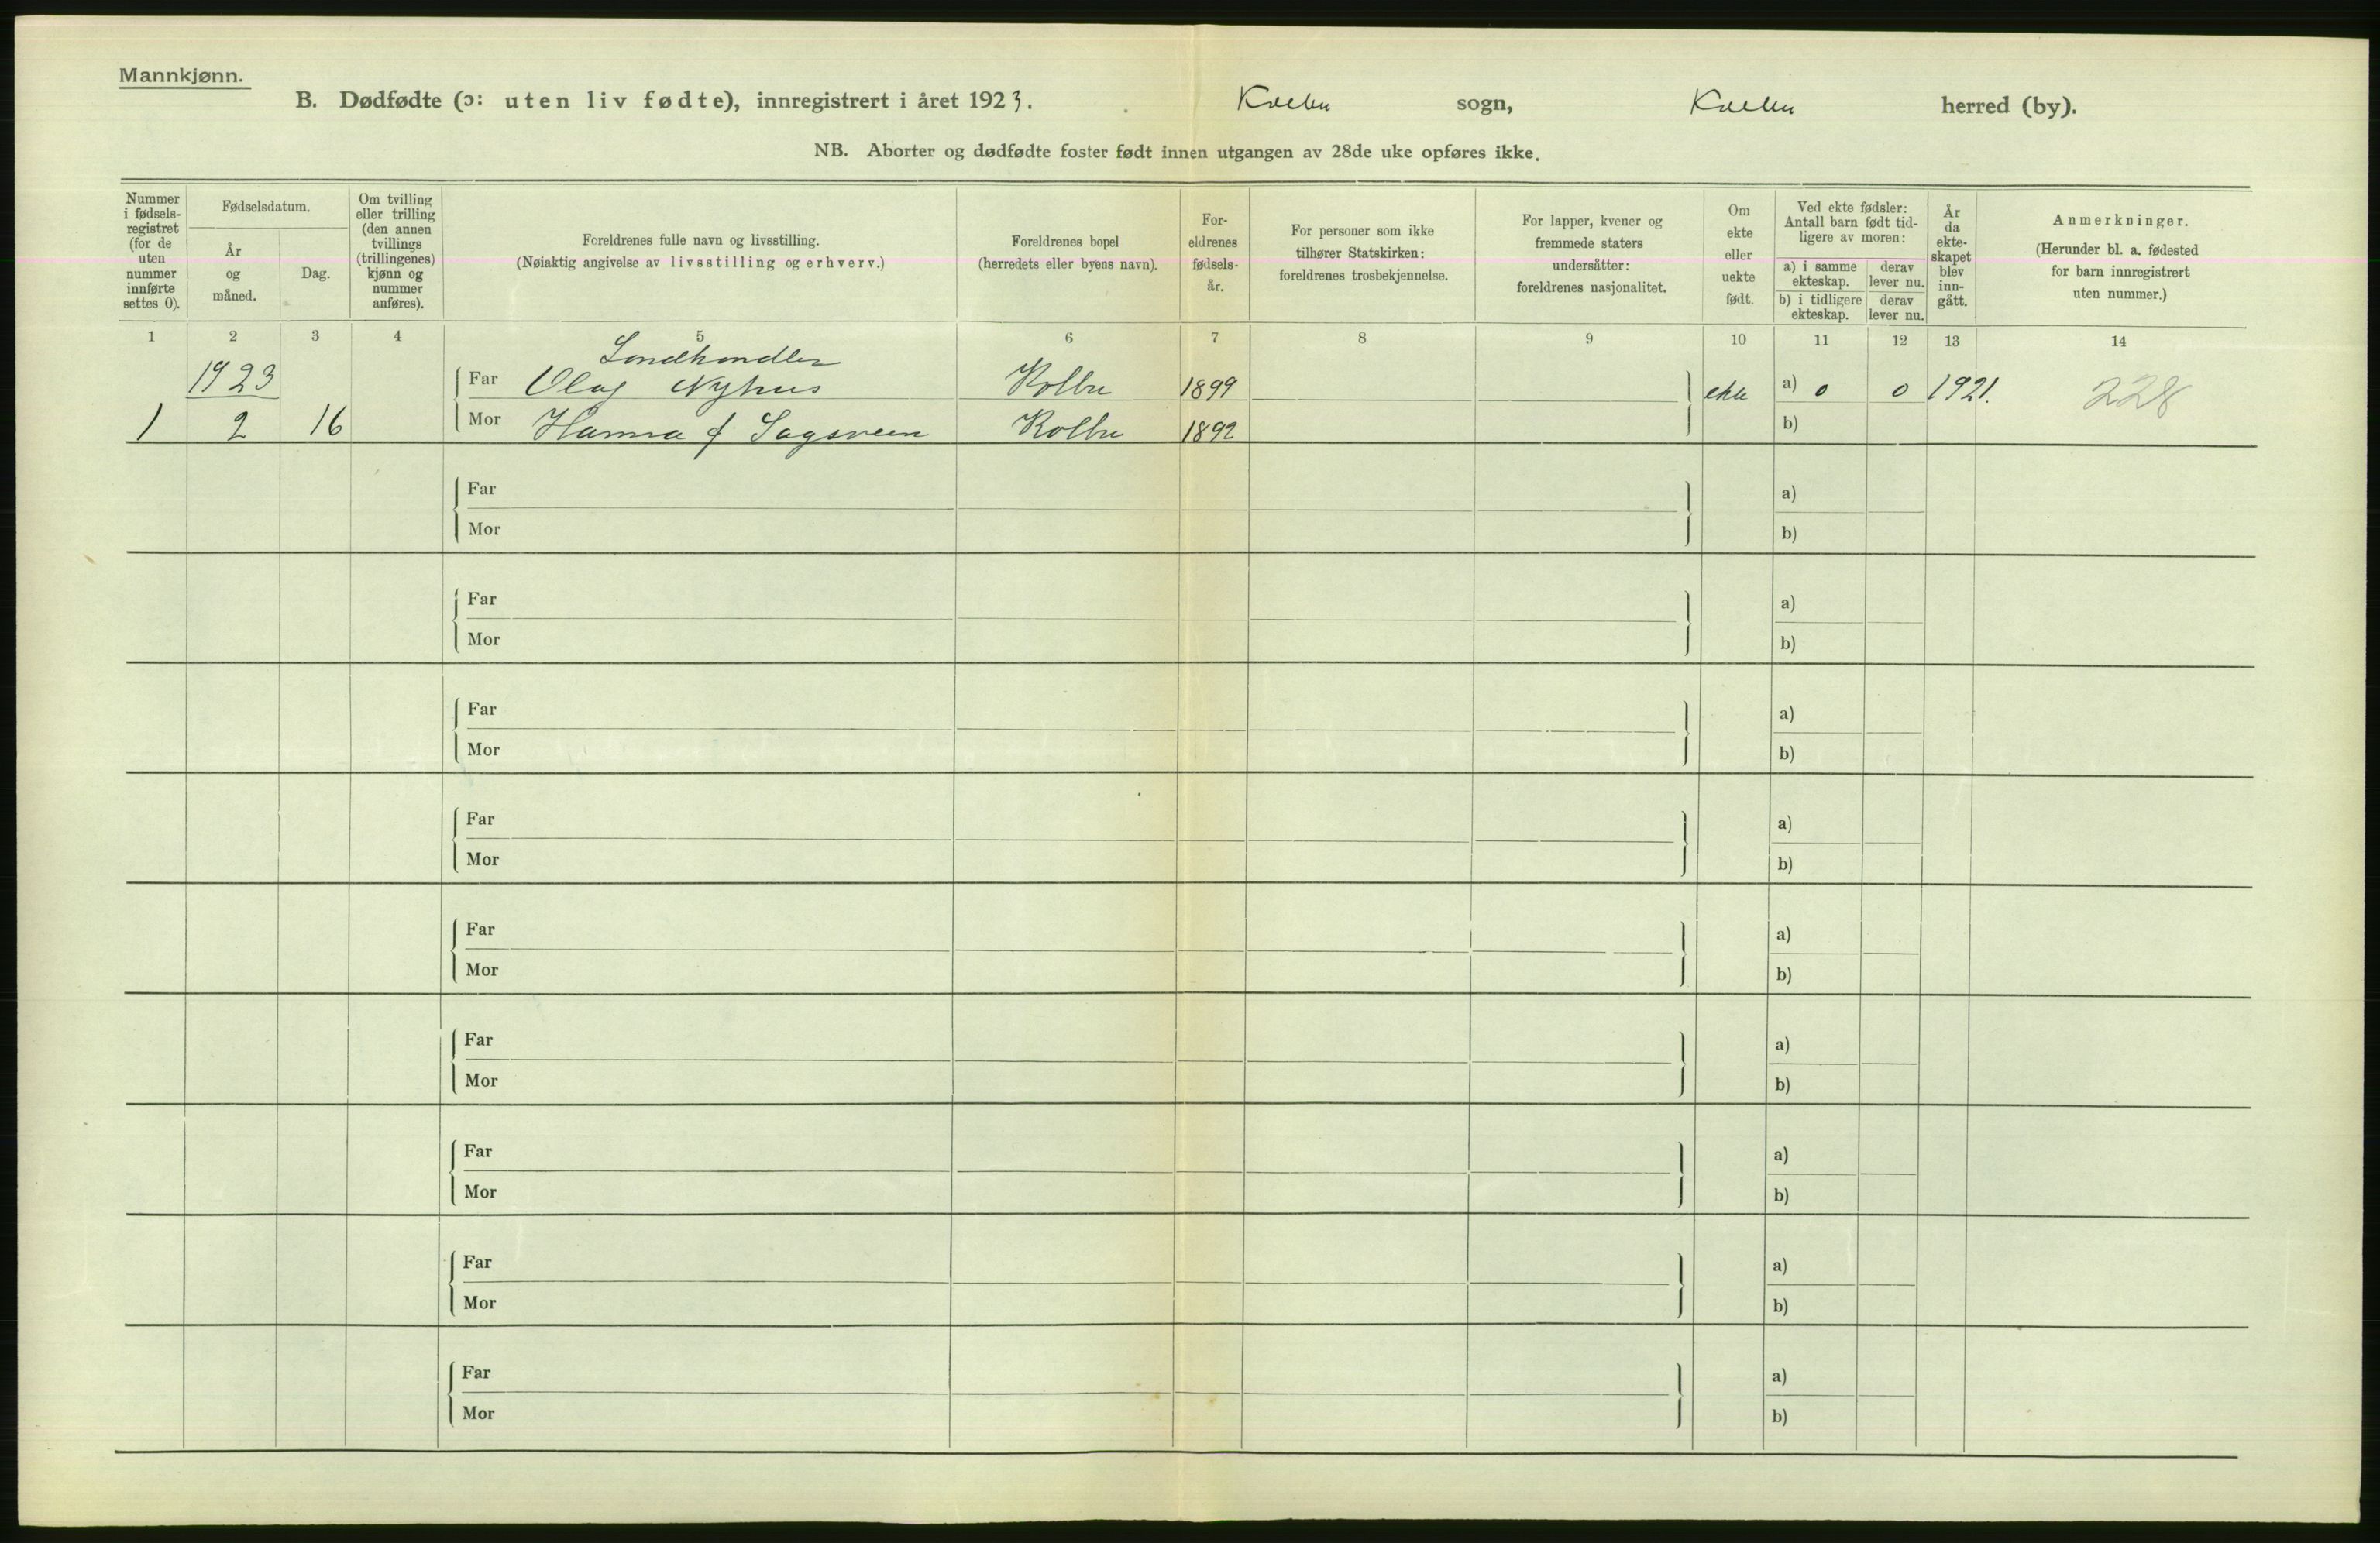 Mannkjønn.
B. Dødfødte (ɔ: uten liv fødte), innregistrert i året 1923. Kolbu sogn, Kolbu herred (by).
NB. Aborter og dødfødte foster født innen utgangen av 28de uke opføres ikke.
Nummer i fødsels-registret (for de uten nummer innførte settes 0).
Fødselsdatum.
År og måned.
Dag.
Om tvilling eller trilling (den annen tvillings (trillingenes) kjønn og nummer anføres).
Foreldrenes fulle navn og livsstilling.
(Nøiaktig angivelse av livsstilling og erhverv.)
Foreldrenes bopel
(herredets eller byens navn).
For-eldrenes fødsels-år.
For personer som ikke tilhører Statskirken: foreldrenes trosbekjennelse.
For lapper, kvener og fremmede staters undersåtter: foreldrenes nasjonalitet.
Om ekte eller uekte født.
Ved ekte fødsler: Antall barn født tid-ligere av moren:
a) i samme ekteskap.
derav lever nu.
b) i tidligere ekteskap.
derav lever nu.
År da ekte-skapet blev inn-gått.
Anmerkninger.
(Herunder bl. a. fødested for barn innregistrert uten nummer.)
1 2 3 4 5 6 7 8 9 10 11 12 13 14
Landhandler
1923 Far Olaf Nyhus Kolbu 1899 ekte a) 0 0 1921. 228
1 2 16 Mor Hanna f Sagsveen Kolbu 1892 b)
Far a)
Mor b)
Far a)
Mor b)
Far a)
Mor b)
Far a)
Mor b)
Far a)
Mor b)
Far a)
Mor b)
Far a)
Mor b)
Far a)
Mor b)
Far a)
Mor b)